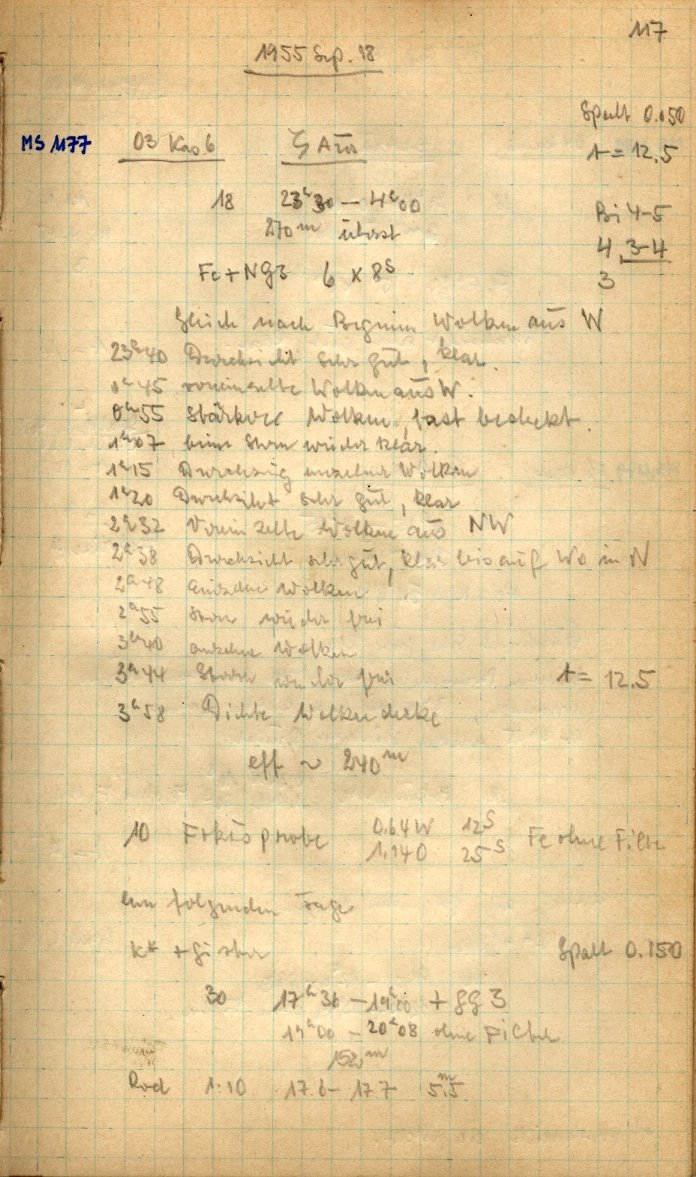 117
1955 Sep. 18
Spalt 0.050
MS 1177 03 Kas 6 ζ Aur
t = 12.5
18 23ʰ30 — 4ʰ00
270ᵐ
Bi 4-5
4, 3-4
3
Fe + NG3 6 x 8ˢ
Gleich nach Beginn Wolken aus W
23ʰ40 Durchsicht sehr gut, klar.
0ʰ45 vereinzelte Wolken aus W.
0ʰ55 Stärkere Wolken, fast bedeckt.
1ʰ07 beim Stern wieder klar.
1ʰ15 Durchzug einzelner Wolken
1ʰ20 Durchsicht sehr gut, klar
2ʰ32 Vereinzelte Wolken aus NW
2ʰ38 Durchsicht sehr gut, klar bis auf Wo in N
2ʰ48 einzelne Wolken
2ʰ55 Stern wieder frei
3ʰ40 einzelne Wolken
3ʰ44 Stern wieder frei t = 12.5
3ʰ58 Dichte Wolkendecke
eff ~ 240ᵐ
10 Fokusprobe 0.64W 12ˢ Fe ohne Filter
1.140 25ˢ
am folgenden Tage
Spalt 0.150
30 17ʰ36 — 19ʰ00 + GG 3
19ʰ00 — 20ʰ08 ohne Filter
152ᵐ
Rod 1:10 17.6 — 17.7 5ᵐ.5